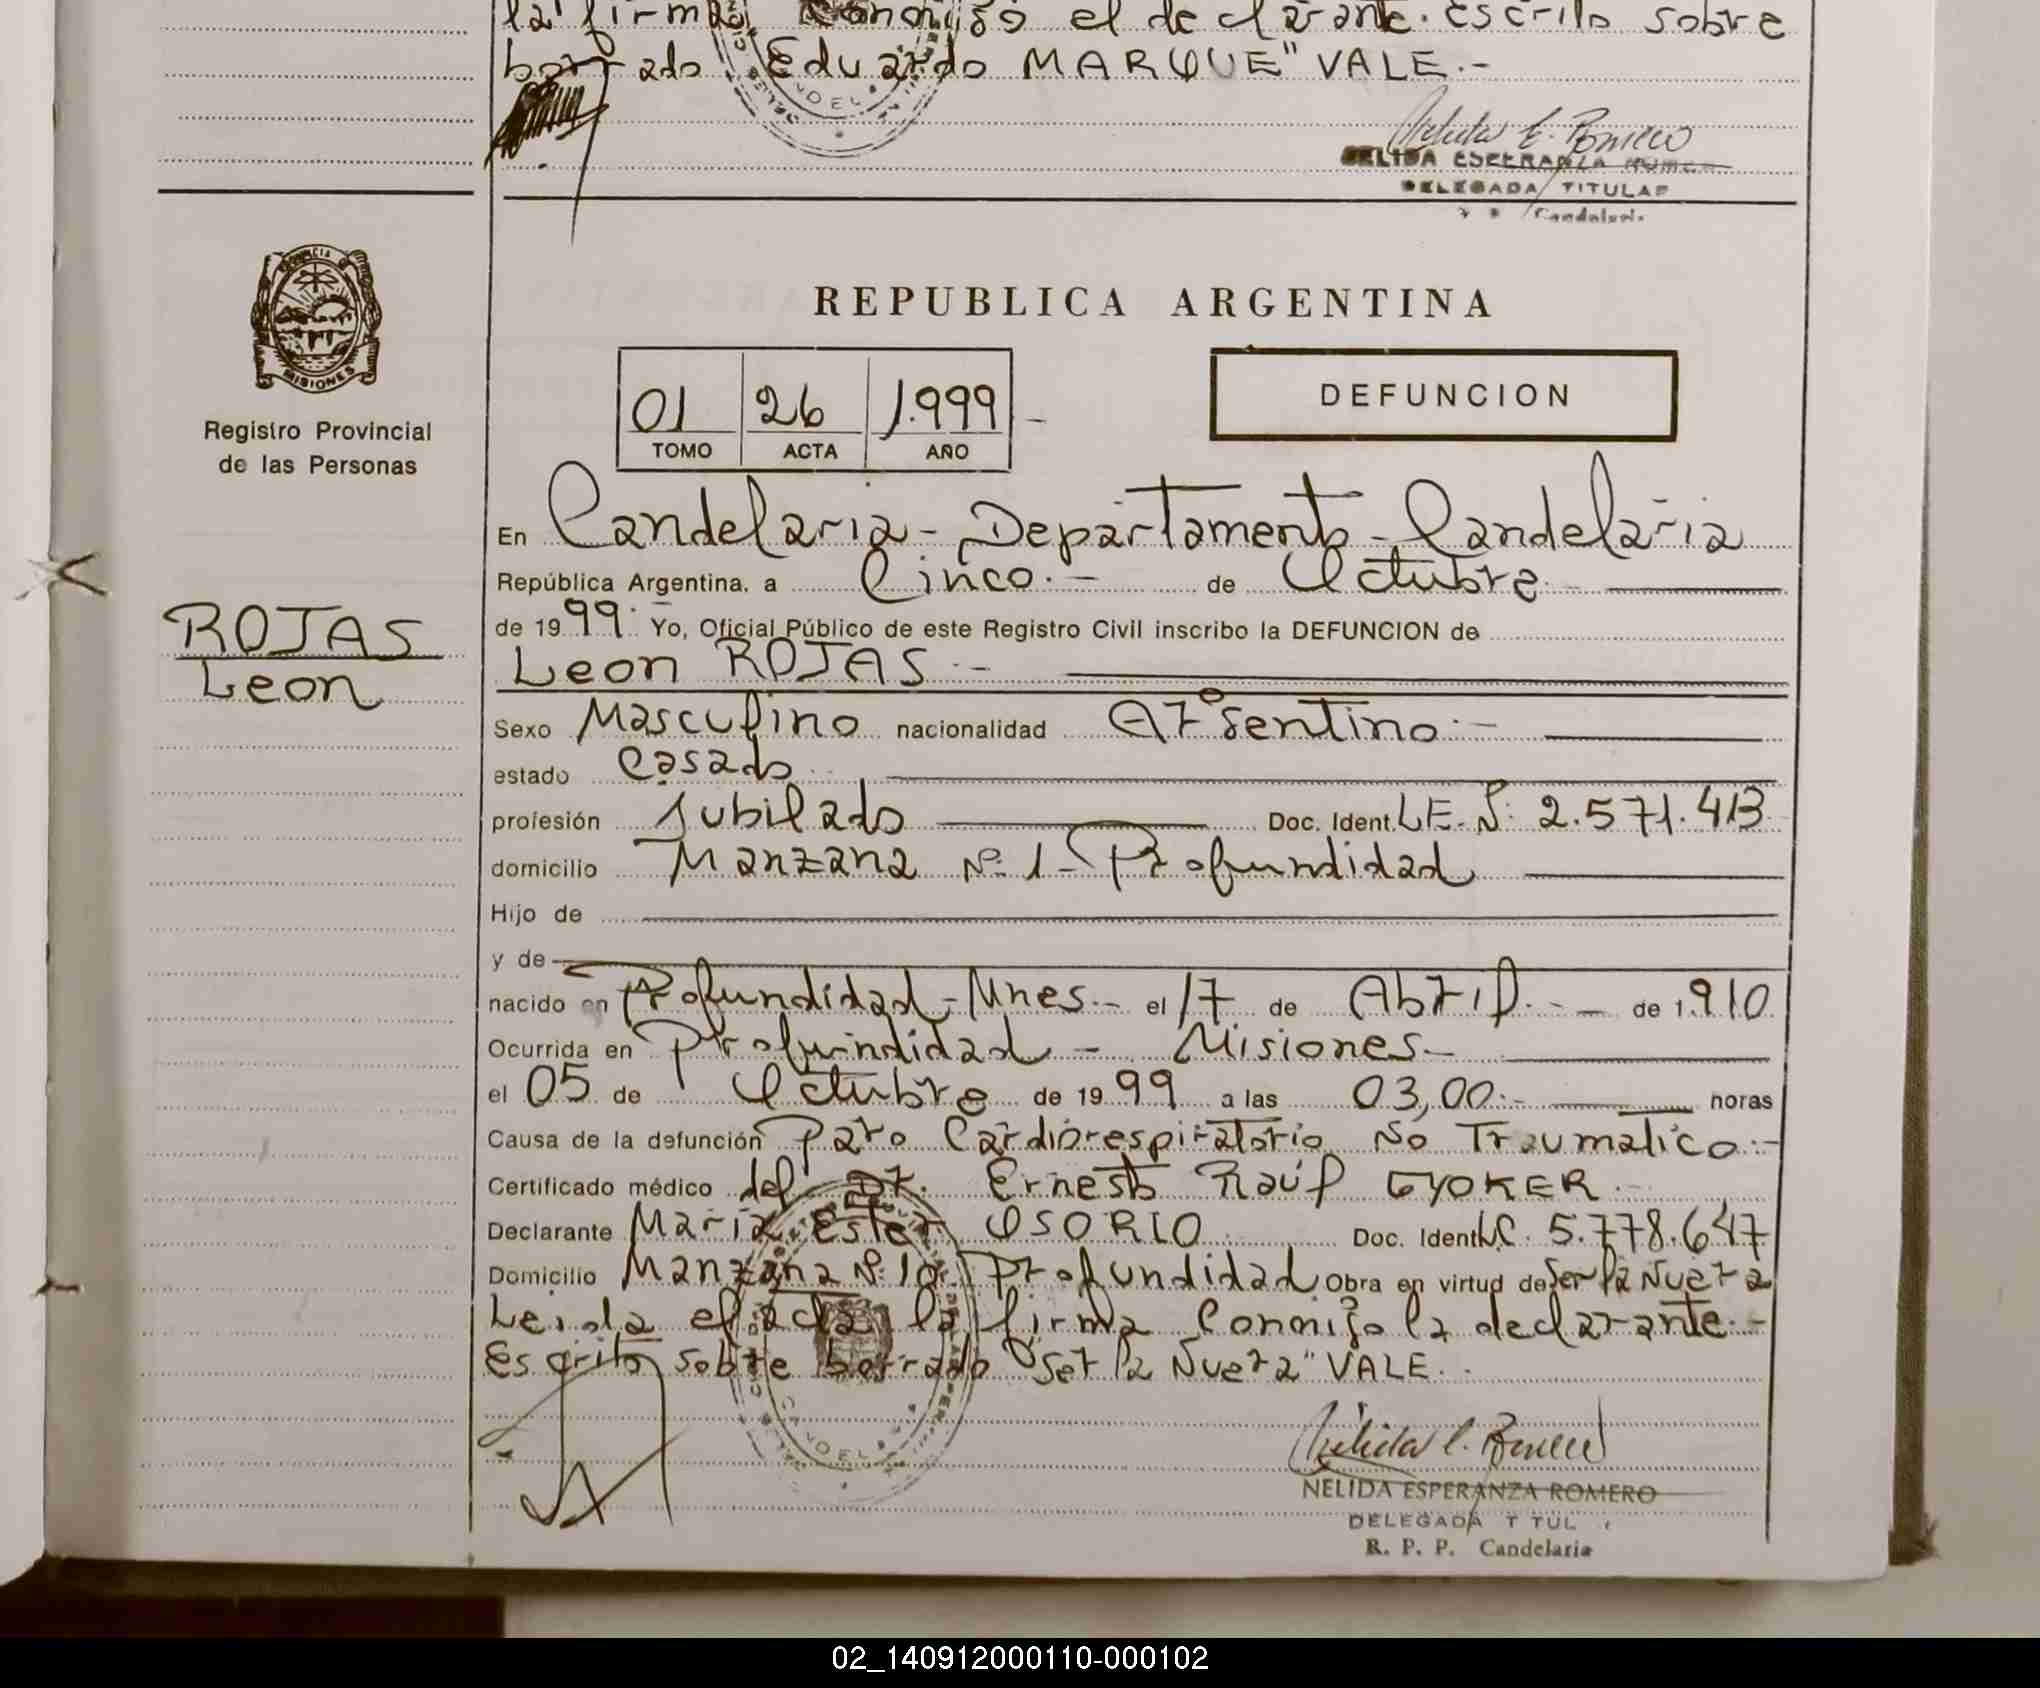 la firma Conmigo el declarante. escrito sobre
borrado "Eduardo MARQUE" VALE.-
Nelida E. Romero
NELIDA ESPERANZA ROMERO
DELEGADA TITULAR
Candelaria
PROVINCIA DE
MISIONES
Registro Provincial
de las Personas
REPUBLICA ARGENTINA
01 26 1.999 -
TOMO ACTA AÑO
DEFUNCION
En Candelaria - Departamento - Candelaria
República Argentina, a Cinco.- de Octubre
de 1999. Yo, Oficial Público de este Registro Civil inscribo la DEFUNCION de
Leon ROJAS.-
ROJAS
Leon
Sexo Masculino nacionalidad Argentino.-
estado Casado
profesión Jubilado Doc. Ident. L.E. Nº 2.571.413
domicilio Manzana Nº 1 - Profundidad
Hijo de
y de
nacido en Profundidad - Mnes.- el 17 de Abril.- de 1.910
Ocurrida en Profundidad - Misiones-
el 05 de Octubre de 1999 a las 03,00.- horas
Causa de la defunción Paro Cardiorespiratorio No Traumatico.-
Certificado médico del Dr. Ernesto Raúl GYOKER.-
Declarante María Ester OSORIO Doc. Ident. L.C. 5.778.647
Domicilio Manzana Nº 10 Profundidad Obra en virtud de Ser la Nuera
Leida el acta la firma Conmigo la declarante.-
Escrito sobre borrado "Ser la Nuera" VALE.
Nelida E. Romero
NELIDA ESPERANZA ROMERO
DELEGADA T TUL
R. P. P. Candelaria
02_140912000110-000102